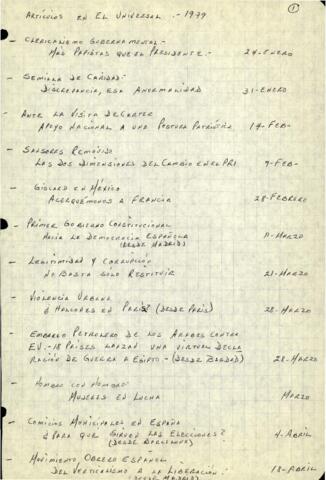 ARTÍCULOS EN EL UNIVERSAL .- 1979
1
- CLERICALISMO GUBERNAMENTAL-
MÁS PAPISTAS QUE EL PRESIDENTE.- 24-ENERO
- SEMILLA DE CAÑIDAD-
DISCREPANCIA, ESA ANORMALIDAD 31-ENERO
- ANTE LA VISITA DE CARTER
APOYO NACIONAL A UNA POSTURA PATRIÓTICA 14-FEB-
- SANSORES REMOVIDO
LAS DOS DIMENSIONES DEL CAMBIO EN EL PRI 9-FEB-
- GISCARD EN MÉXICO
ACERQUÉMONOS A FRANCIA 28-FEBRERO
- PRIMER GOBIERNO CONSTITUCIONAL
HACIA LA DEMOCRACIA ESPAÑOLA 11-MARZO
(DESDE MADRID)
- LEGITIMIDAD Y CORRUPCIÓN
NO BASTA SÓLO RESTITUIR 21-MARZO
- VIOLENCIA URBANA
EN PARÍS (DESDE PARÍS) 28-MARZO
- EMBARGO PETROLERO DE LOS ARABES CONTRA
EU.- 18 PAÍSES LANZAN UNA VIRTUAL DECLA
RACIÓN DE GUERRA A EGIPTO - (DESDE BAGDAD) 28-MARZO
- HOMBRO CON HOMBRO
MUJERES EN LUCHA MARZO
- COMICIOS MUNICIPALES EN ESPAÑA
¿PARA QUE SIRVEN LAS ELECCIONES? 4-ABRIL
(DESDE BARCELONA)
- MOVIMIENTO OBRERO ESPAÑOL
DEL VERTICALISMO A LA LIBERACIÓN- 18-ABRIL
(DESDE MADRID)